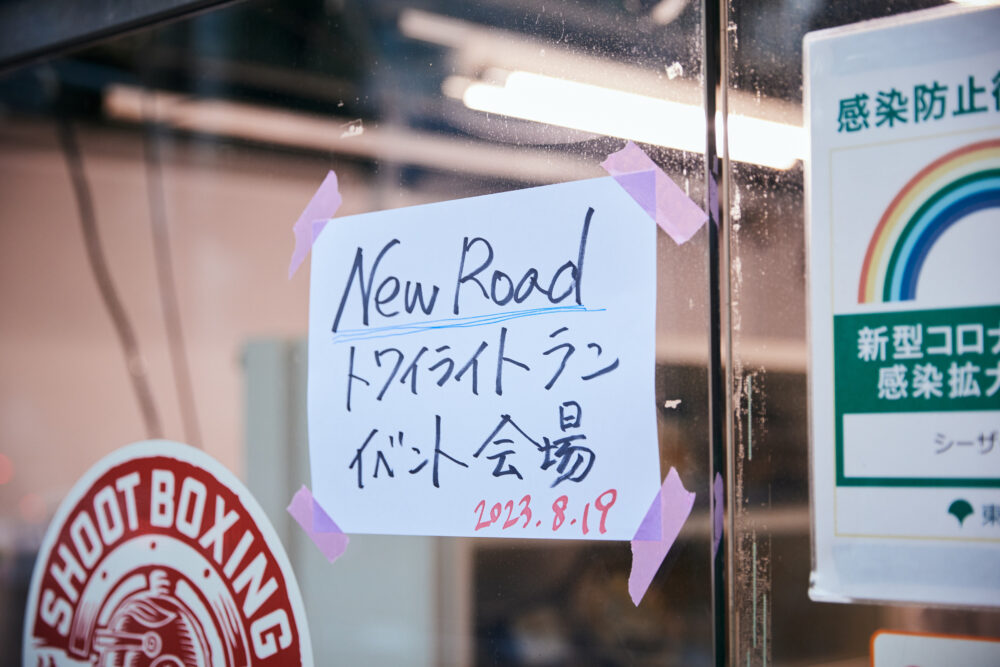 New Road
トワイライトラン
イベント会場
2023.8.19
SHOOTBOXING
感染防止
新型コロナ
感染拡大
シーザ
東